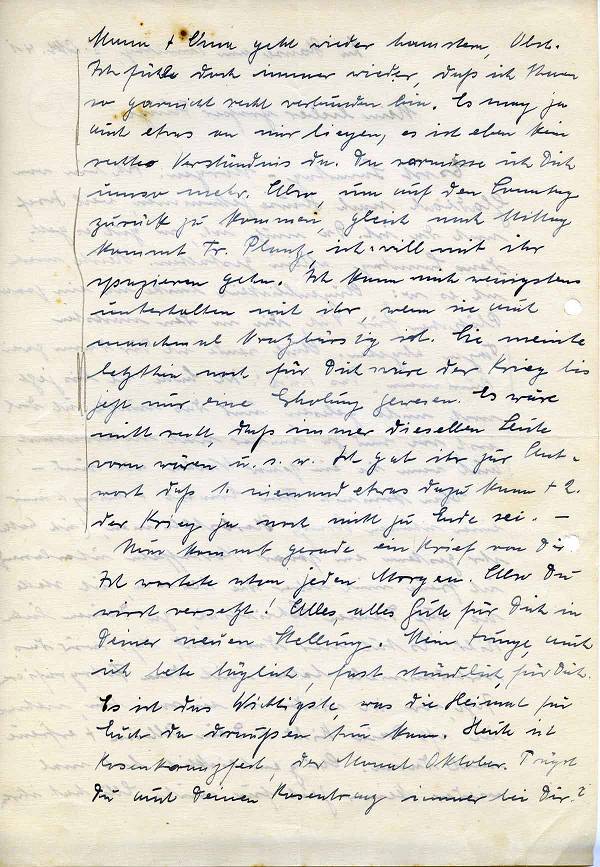 Mama + Oma geht wieder hamstern, Obst.
Ich fühle doch immer wieder, daß ich ihnen
so garnicht recht verbunden bin. Es mag ja
auch etwas an mir liegen, es ist eben kein
rechtes Verständnis da. Da vermisse ich Dich
umso mehr. Also, um auf den Sonntag
zurück zu kommen, gleich nach Mittag
kommt Fr. ich will mit ihr
spazieren gehn. Ich kann mich wenigstens
unterhalten mit ihr, wenn sie auch
manchmal kratzbürstig ist. Sie meinte
letzthin noch für Dich wäre der Krieg bis
jetzt nur eine Erholung gewesen. Es wäre
nicht recht, daß immer dieselben Leute
vorn wären u. s. w. Ich gab ihr zur Ant-
wort daß 1. niemand etwas dazu kann + 2.
der Krieg ja noch nicht zu Ende sei. —
Nun kommt gerade ein Brief von Dir
Ich wartete schon jeden Morgen. Also Du
wirst versetzt! Alles, alles Gute für Dich in
Deiner neuen Stellung. Mein Junge, auch
ich bete täglich, fast stündlich, für Dich.
Es ist das Wichtigste, was die Heimat für
Euch da draußen tun kann. Heute ist
Rosenkranzfest, der Monat Oktober. Trägst
Du auch Deinen Rosenkranz immer bei Dir?